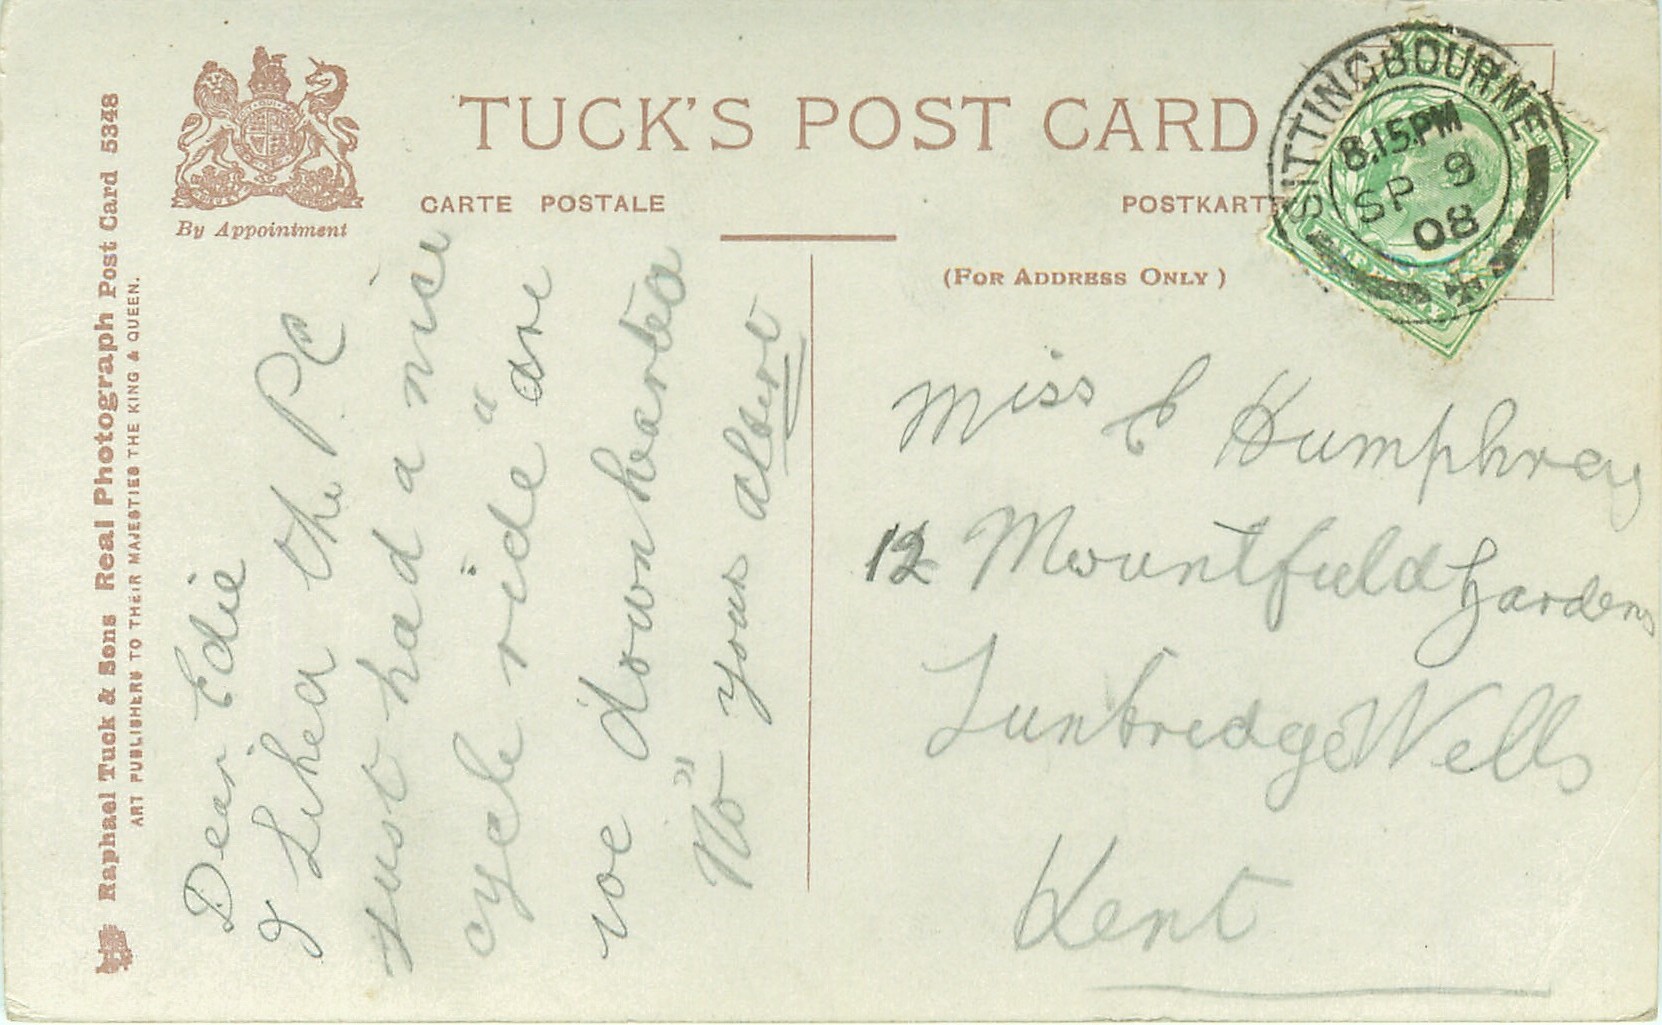 Raphael Tuck & Sons Real Photograph Post Card 5348
ART PUBLISHERS TO THEIR MAJESTIES THE KING & QUEEN.
By Appointment
TUCK'S POST CARD
CARTE POSTALE
POSTKARTE
(FOR ADDRESS ONLY)
SITTINGBOURNE
8.15.PM
SP 9
08
Dear Edie
I liked the P.C
just had a nice
cycle ride "are
we downhearted
No" your albert
Miss E Humphrey
12 Mountfield Gardens
Tunbridge Wells
Kent